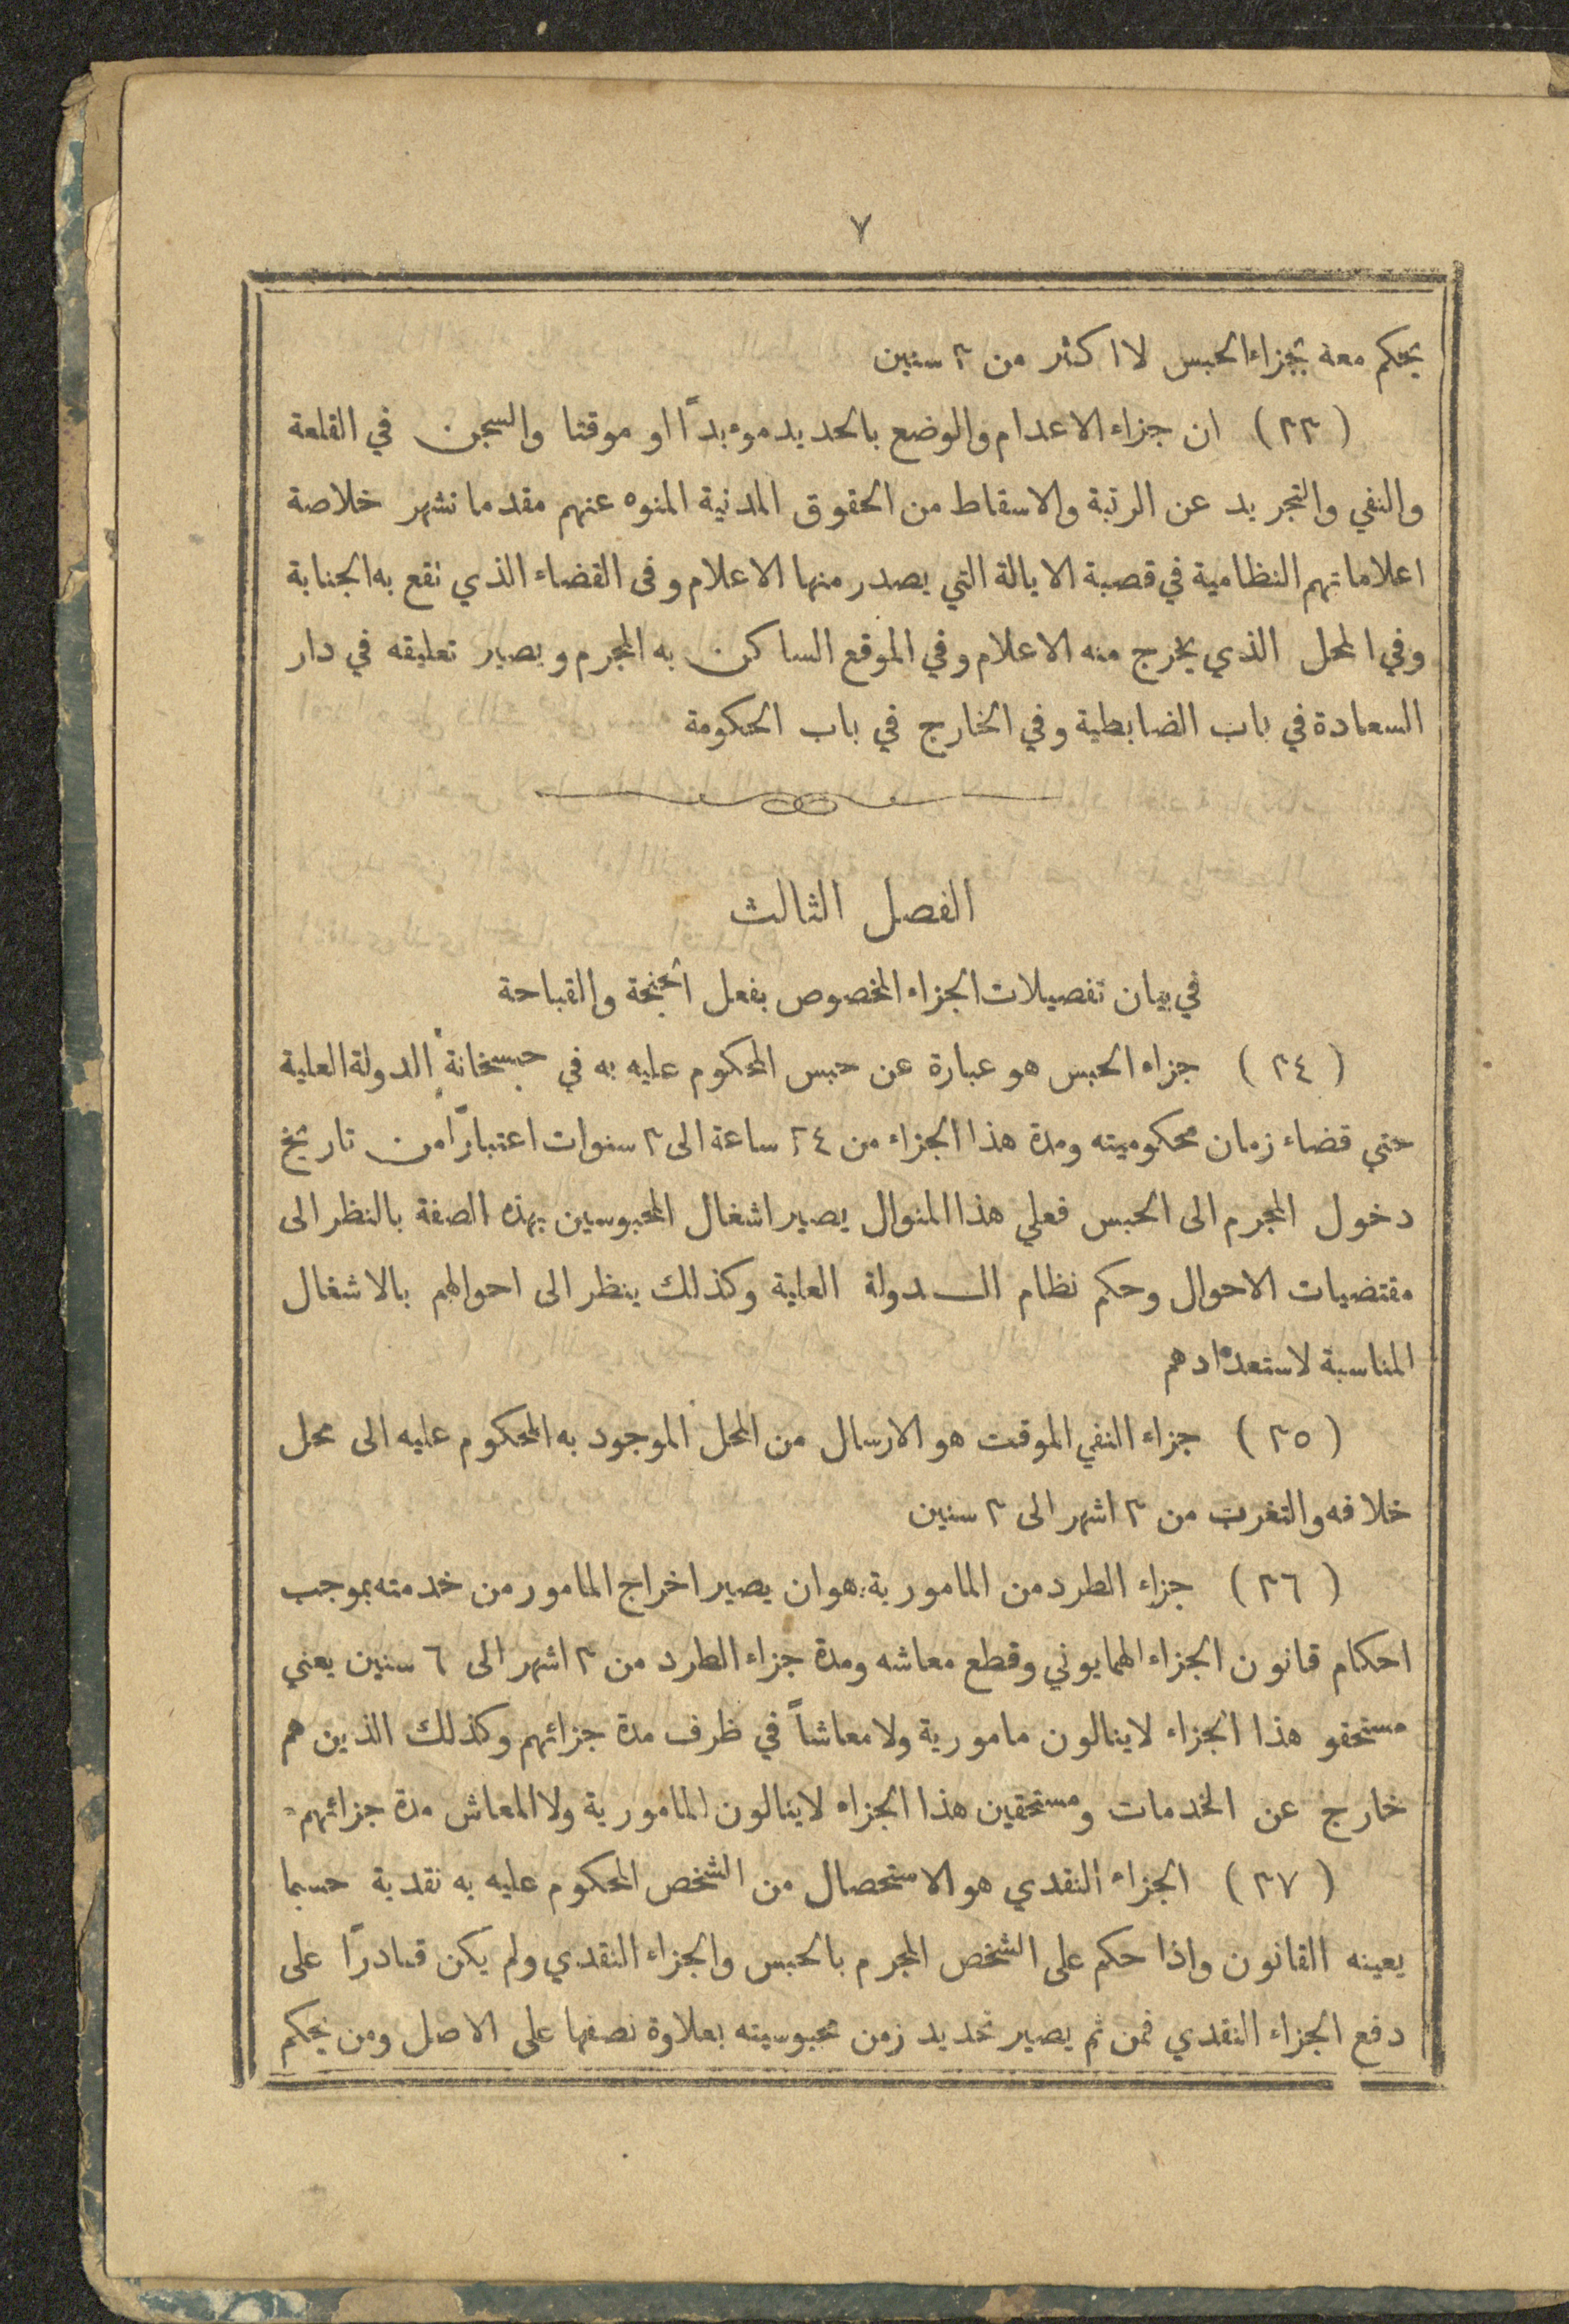 ٧
يحكم معه بجزاء الحبس لا اكثر من ٣ سنين
(٣٣) ان جزاء الاعدام والوضع بالحديد موءبداً او موقتا والسجن في القلعة
والنفي والتجريد عن الرتبة والاسقاط من الحقوق المدنية المنوه عنهم مقدما تشهر خلاصة
اعلاماتهم النظامية في قصبة الايالة التي يصدر منها الاعلام وفى القضاء الذي تقع به الجناية
وفي المحل الذي يخرج منه الاعلام وفي الموقع الساكن به المجرم ويصير تعليقه في دار
السعادة في باب الضابطية وفي الخارج في باب الحكومة
الفصل الثالث
في بيان تفصيلات الجزاء المخصوص بفعل الجنحة والقباحة
(٣٤) جزاء الحبس هو عبارة عن حبس المحكوم عليه به في حبسخانة الدولة العلية
حتي قضاء زمان محكوميته ومدة هذا الجزاء من ٢٤ ساعة الى ٣ سنوات اعتباراً من تاريخ
دخول المجرم الى الحبس فعلي هذا المنوال يصير اشغال المحبوسين بهذه الصفة بالنظر الى
مقتضيات الاحوال وحكم نظام الدولة العلية وكذلك ينظر الى احوالهم بالاشغال
المناسبة لاستعدادهم
(٣٥) جزاء النفي الموقت هو الارسال من المحل الموجود به المحكوم عليه الى محل
خلافه والتغرب من ٣ اشهر الى ٣ سنين
(٣٦) جزاء الطرد من المامورية هو ان يصير اخراج المامور من خدمته بموجب
احكام قانون الجزاء الهمايوني وقطع معاشه ومدة جزاء الطرد من ٣ اشهر الى ٦ سنين يعني
مستحقو هذا الجزاء لاينالون مامورية ولا معاشاً في ظرف مدة جزائهم وكذلك الذين هم
خارج عن الخدمات ومستحقين هذا الجزاء لاينالون المامورية ولا المعاش مدة جزائهم
(٣٧) الجزاء النقدي هو الاستحصال من الشخص المحكوم عليه به نقدية حسبما
يعينه القانون واذا حكم على الشخص المجرم بالحبس والجزاء النقدي ولم يكن قادراً على
دفع الجزاء النقدي فمن ثم يصير تمديد زمن محبوسيته بعلاوة نصفها على الاصل ومن يحكم